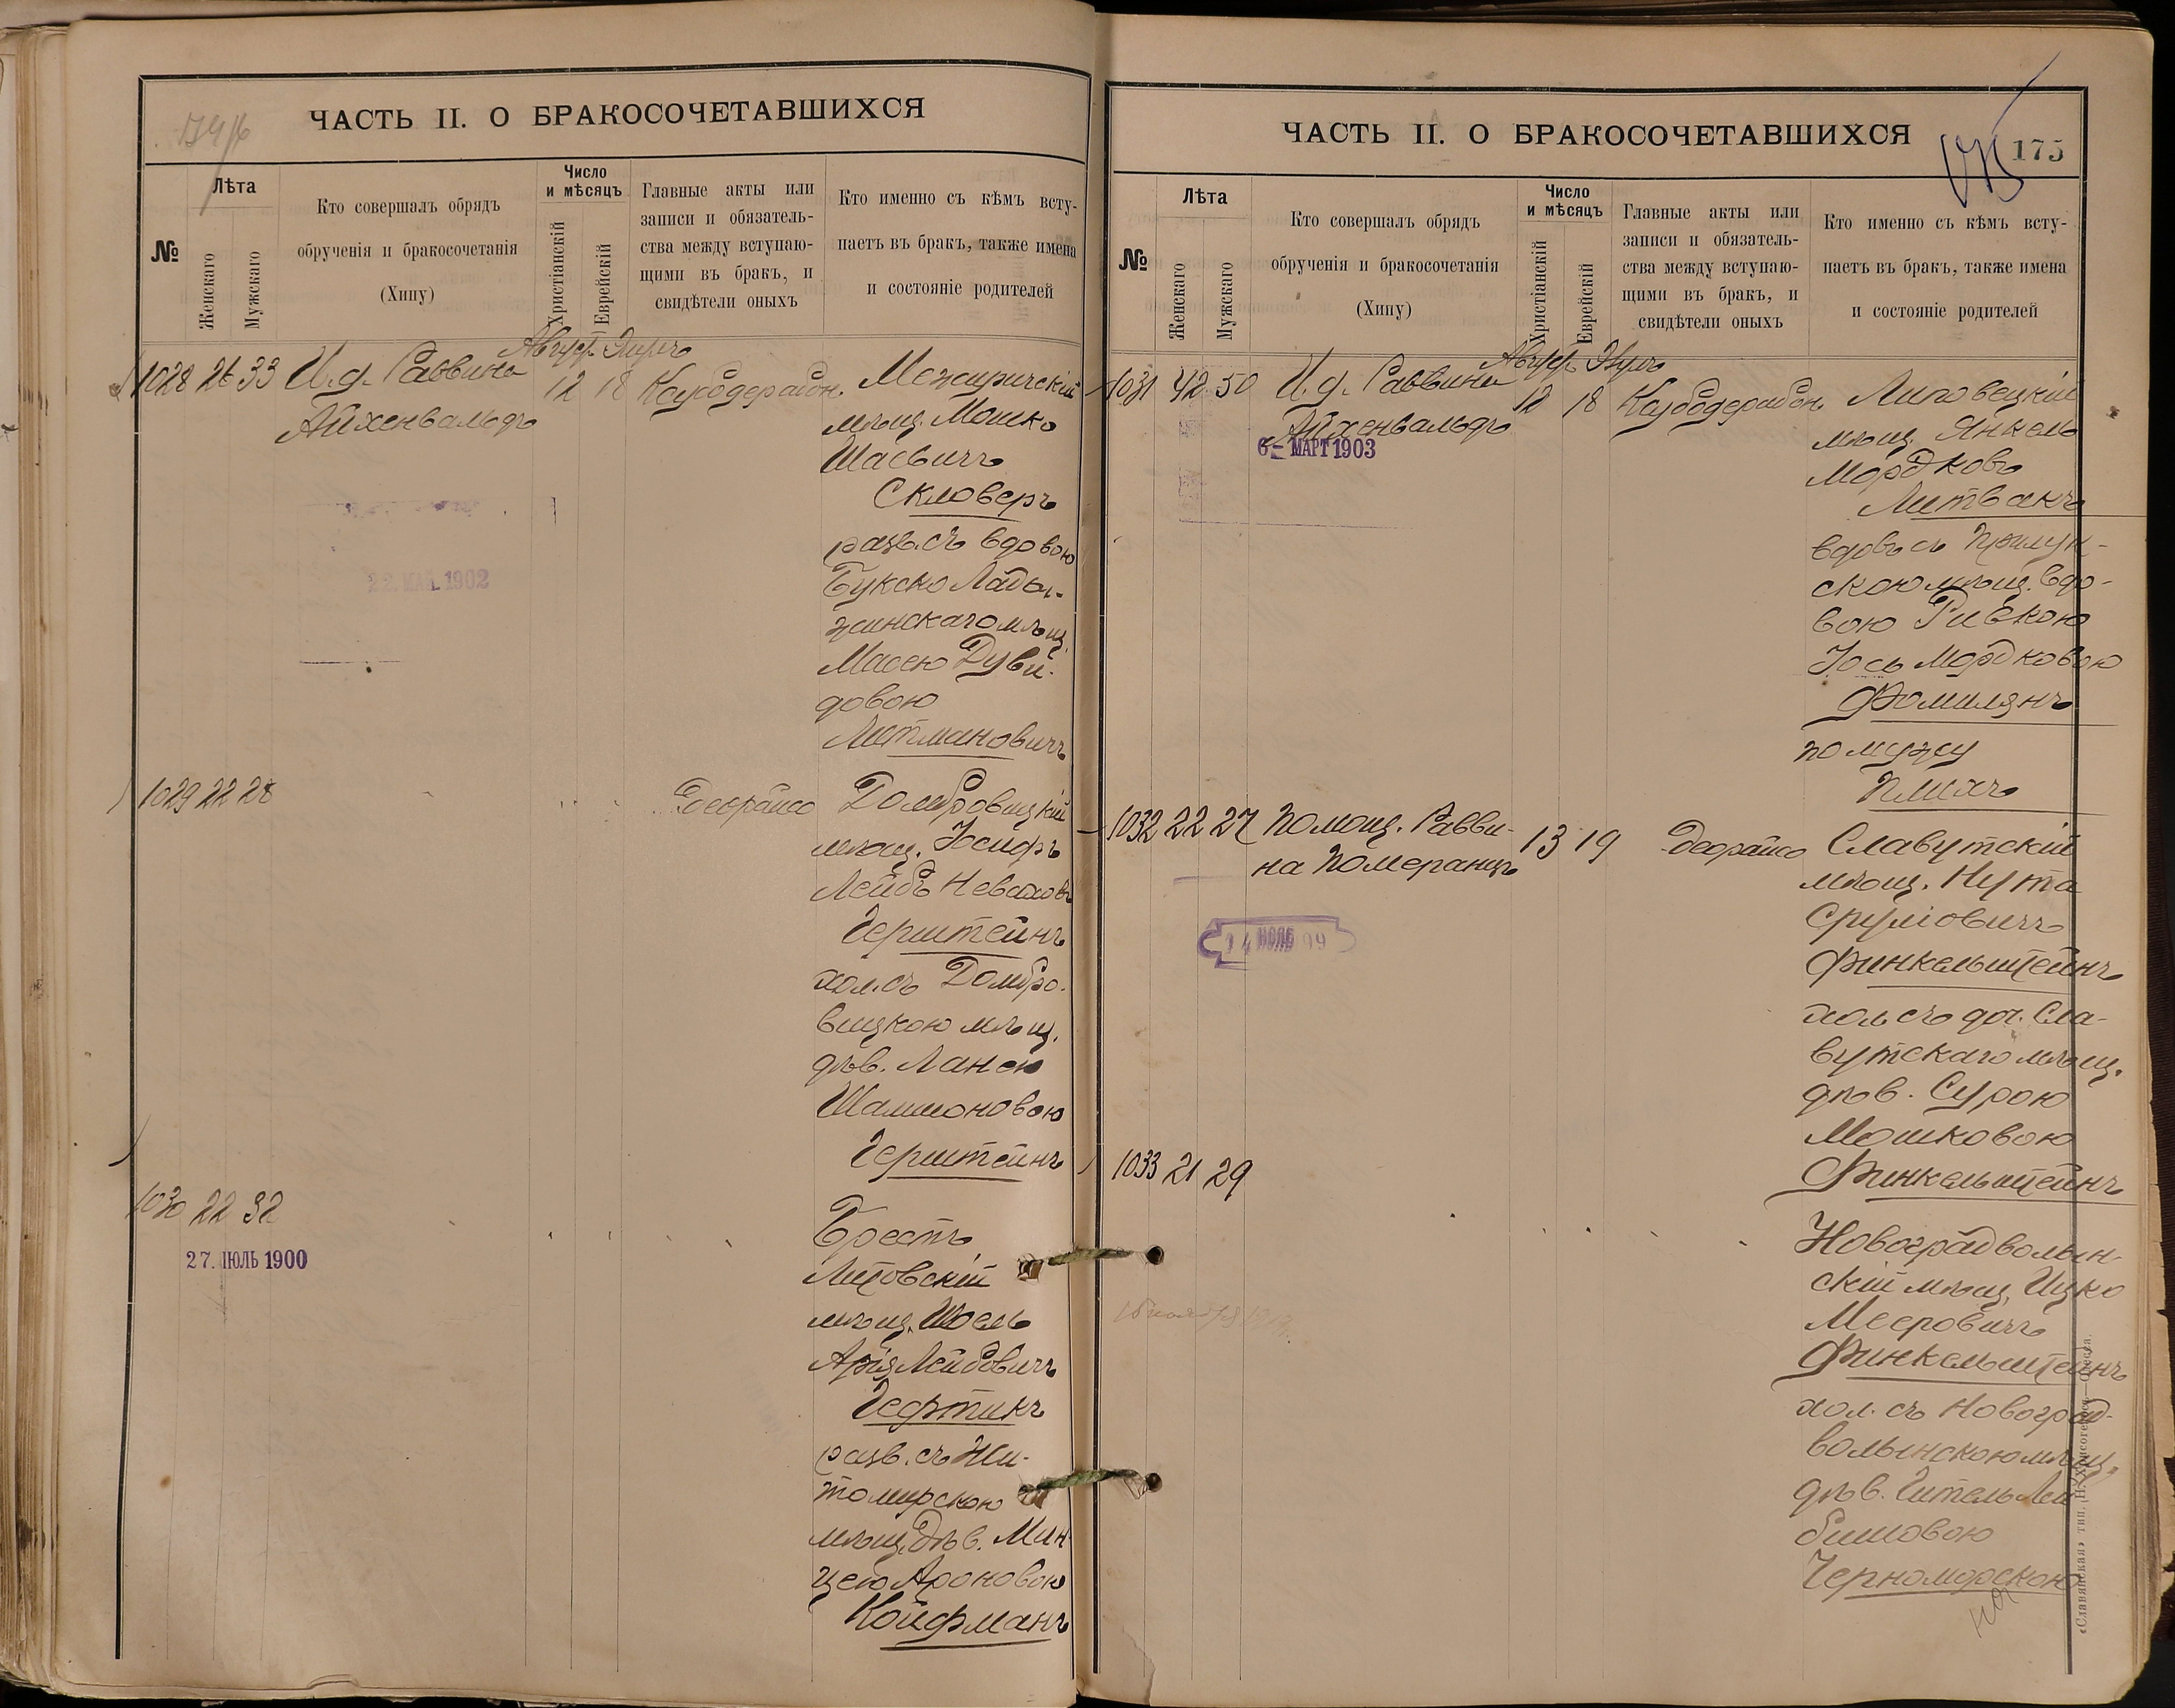 ЧАСТЬ II. О БРАКОСОЧЕТАВШИХСЯ
№
Лѣта
Женскаго
Мужскаго
Кто совершалъ обрядъ
обрученія и бракосочетанія
(Хипу)
Число
и мѣсяцъ
Христіанскій
Еврейскій
Главные акты или
записи и обязатель-
ства между вступаю-
щими въ бракъ, и
свидѣтели оныхъ
Кто именно съ кѣмъ всту-
паетъ въ бракъ, также имена
и состояніе родителей
Август.
1028 26 33 И.д. Раввина 12 18
Айхенвальдъ
Межиричскій
мѣщ. Мошко
Шаевичъ
Скловеръ
разв. съ вдовою
Букско Лады-
жинскаго мѣщ.
Масею Дуви-
довою
Литмановичъ
22. МАЙ. 1902
1029 22 28
Домбровицкій
мѣщ. Іосифъ
Лейбъ
Герштейнъ
хол. съ Домбро-
вицкою мѣщ.
дѣв. Ханею
Шаммоновою
Герштейнъ
1030 22 32
27. ІЮЛЬ 1900
Брестъ
Литовскій
мѣщ. Шоель
Арія Лейбовичъ
Гефтикъ
разв. съ Жи-
томирскою
мѣщ. дѣв. Мин-
цею Ароновою
Койфманъ
ЧАСТЬ II. О БРАКОСОЧЕТАВШИХСЯ
175
№
Лѣта
Женскаго
Мужскаго
Кто совершалъ обрядъ
обрученія и бракосочетанія
(Хипу)
Число
и мѣсяцъ
Христіанскій
Еврейскій
Главные акты или
записи и обязатель-
ства между вступаю-
щими въ бракъ, и
свидѣтели оныхъ
Кто именно съ кѣмъ всту-
паетъ въ бракъ, также имена
и состояніе родителей
Август.
1031 42 50 И.д. Раввина 12 18
Айхенвальдъ
6- МАРТ 1903
Липовецкій
мѣщ. Янкель
Мордковъ
Литвакъ
вдов. съ Прилук-
скою мѣщ. вдо-
вою Ривкою
Іось Мордковою
Фомилянъ
по мужу
Плихъ
1032 22 27 Помощ. Равви- 13 19
на Померанцъ
Славутскій
мѣщ. Нута
Сруліовичъ
Финкельштейнъ
хол. съ доч. Сла-
вутскаго мѣщ.
дѣв. Сурою
Мошковою
Финкельштейнъ
1033 21 29
Новоградволын-
скій мѣщ. Ицко
Мееровичъ
Финкельштейнъ
хол. съ Новоград-
волынскою мѣщ.
дѣв. Гитель Лей-
бишовою
Черноморскою
«Славянская» тип. Н. Хрисогелосъ. Одесса.